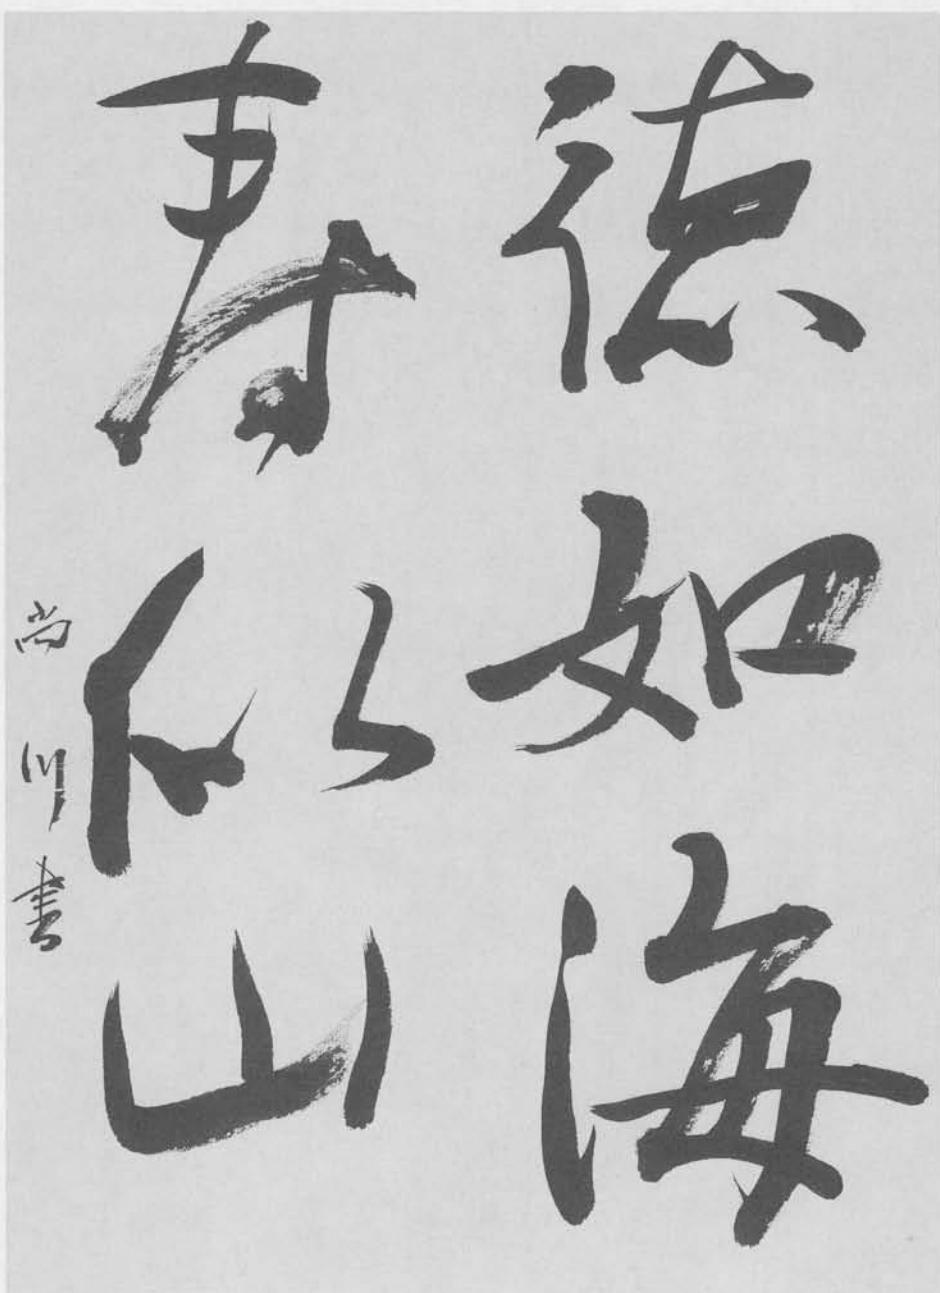 徳如海
寿似山
尚川書